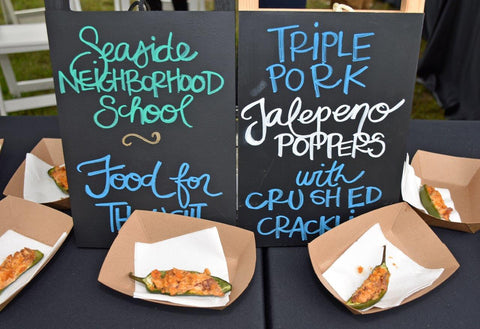 Seaside
NEIGHBORHOOD
School
Food for
THOUGHT
TRIPLE
PORK
Jalepeno
POPPERS
with
CRUSHED
CRACKLIN